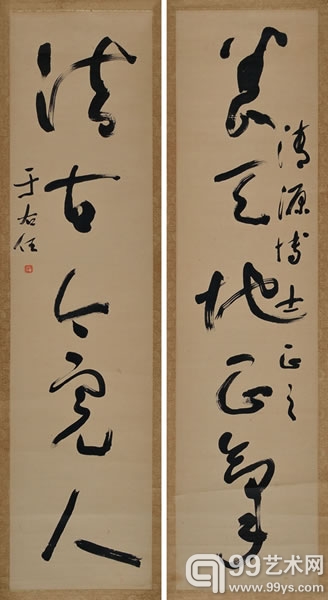 清源博士正之
養天地正氣
法古今完人
于右任
99艺术网
www.99ys.com